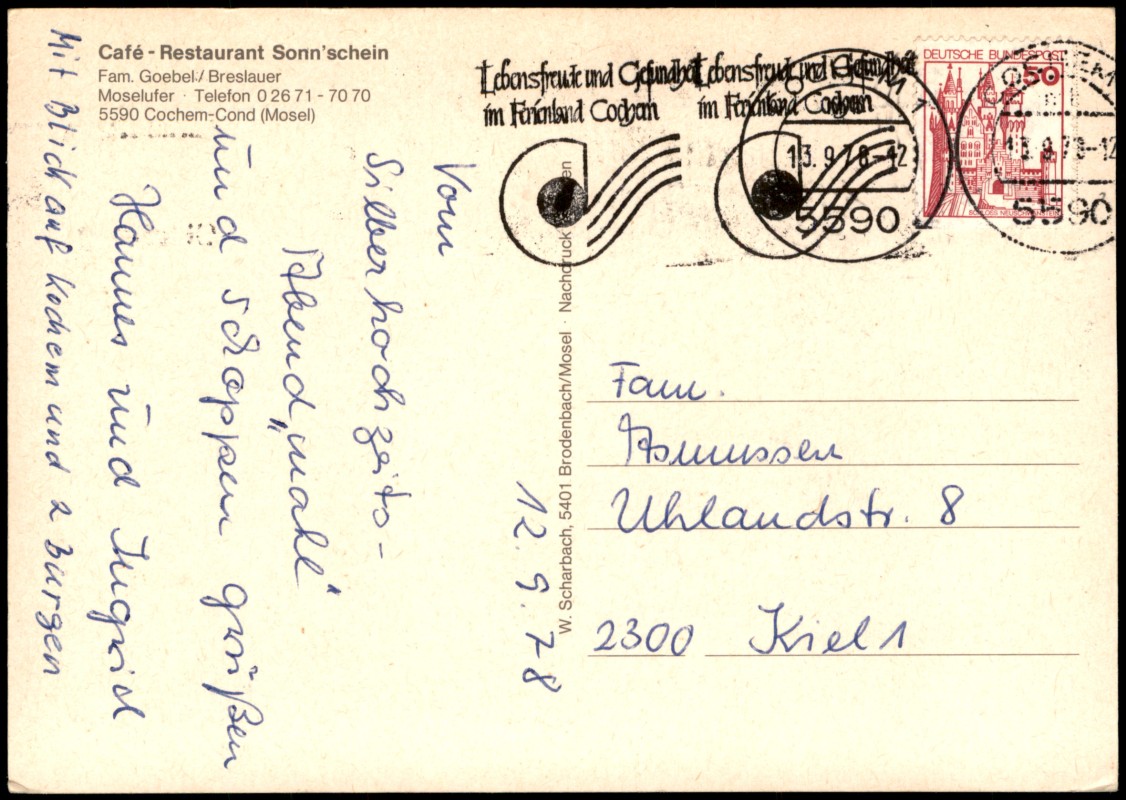 Café - Restaurant Sonn'schein
Fam. Goebel / Breslauer
Moselufer · Telefon 0 26 71 - 70 70
5590 Cochem-Cond (Mosel)
12.9.78
Vom
Silberhochzeits-
Abend„mahl“
und schoppen grüßen
Hannes und Ingrid
Mit Blick auf Kochem und 2 Burgen
W. Scharbach, 5401 Brodenbach/Mosel · Nachdruck
Lebensfreude und Gesundheit
im Ferienland Cochem
Lebensfreude und Gesundheit
im Ferienland Cochem
13.9.78-12
5590
DEUTSCHE BUNDESPOST
50
13.9.78-12
5590
Fam.
Asmussen
Uhlandstr. 8
2300 Kiel 1